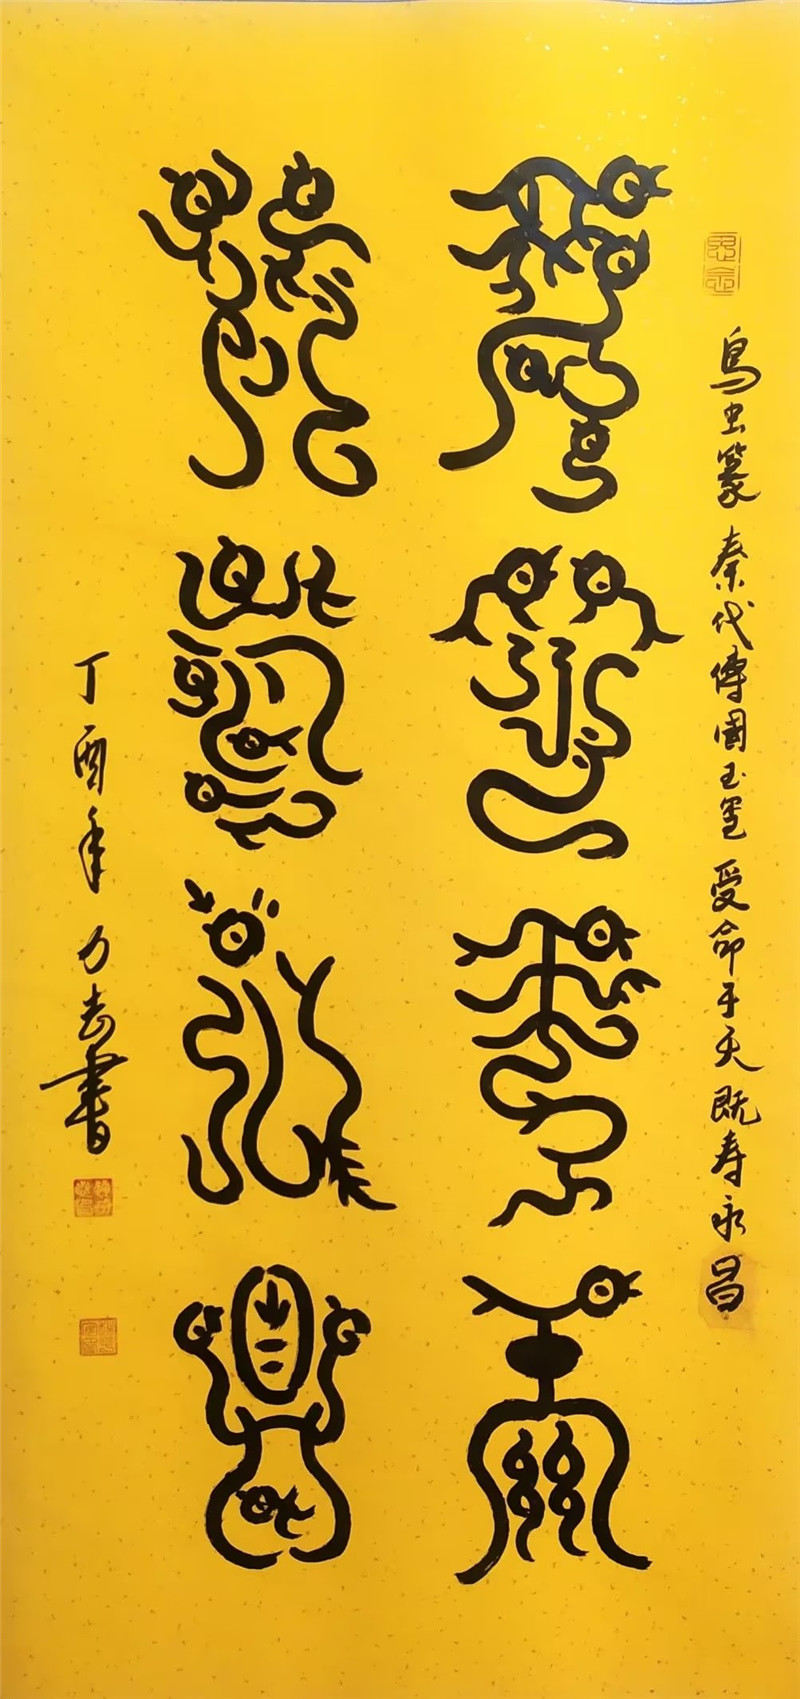 鸟虫篆 秦代傳國玉玺 受命于天 既寿永昌
受命于天
既壽永昌
丁酉年 力 書